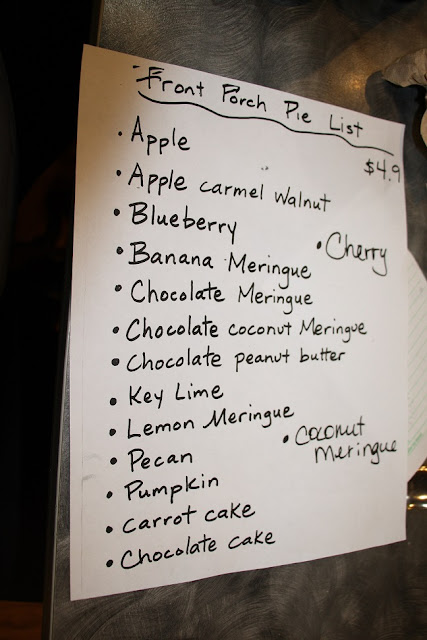 Front Porch Pie List
$4.9
• Apple
• Apple carmel walnut
• Blueberry
• Cherry
• Banana Meringue
• Chocolate Meringue
• Chocolate coconut Meringue
• Chocolate peanut butter
• Key Lime
• Lemon Meringue
• Coconut
Meringue
• Pecan
• Pumpkin
• carrot cake
• Chocolate cake